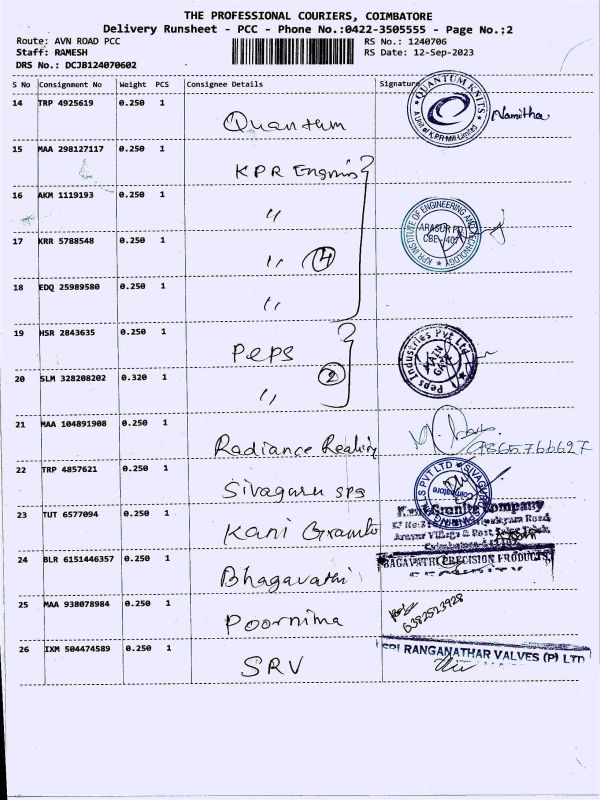 THE PROFESSIONAL COURIERS, COIMBATORE
Delivery Runsheet - PCC - Phone No.:0422-3505555 - Page No.:2
Route: AVN ROAD PCC RS No.: 1240706
Staff: RAMESH RS Date: 12-Sep-2023
DRS No.: DCJB124070602
S No Consignment No Weight PCS Consignee Details Signature
14 TRP 4925619 0.250 1 Quantum QUANTUM KNITS A Unit of K.P.R Mill Limited Namitha
15 MAA 298127117 0.250 1 KPR
16 AKM 1119193 0.250 1 " KPR INSTITUTE OF ENGINEERING AND TECHNOLOGY ARASUR PO CBE - 407
17 KRR 5788548 0.250 1 " 4
18 EDQ 25989580 0.250 1 "
19 HSR 2843635 0.250 1 Peps Peps Industries Pvt Ltd MAIN GATE
20 SLM 328208202 0.320 1 " 2
21 MAA 104891908 0.250 1 Radiance
22 TRP 4857621 0.250 1 Sivaguru Coimbatore
23 TUT 6577094 0.250 1 Kani Granite Kani Granite Company
24 BLR 6151446357 0.250 1 Bhagavathi BAGAVATHI PRECISION PRODUCTS
25 MAA 938078984 0.250 1 Poornima 6382523928
26 IXM 504474589 0.250 1 SRV SRI RANGANATHAR VALVES (P) LTD